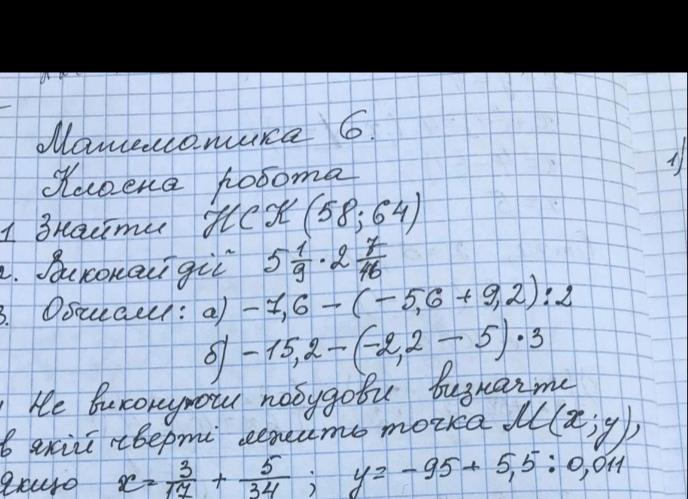 Математика 6.
Класна робота
1 Знайти НСК (58; 64)
2. Виконай дії 5 1/9 · 2 7/46
3. Обчисли: а) -7,6 - (-5,6 + 9,2) : 2
б) -15,2 - (-2,2 - 5) · 3
Не виконуючи побудови визначти
в якій чверті лежить точка М(х; у),
якщо х = 3/17 + 5/34 ; у = -95 + 5,5 : 0,011
1)